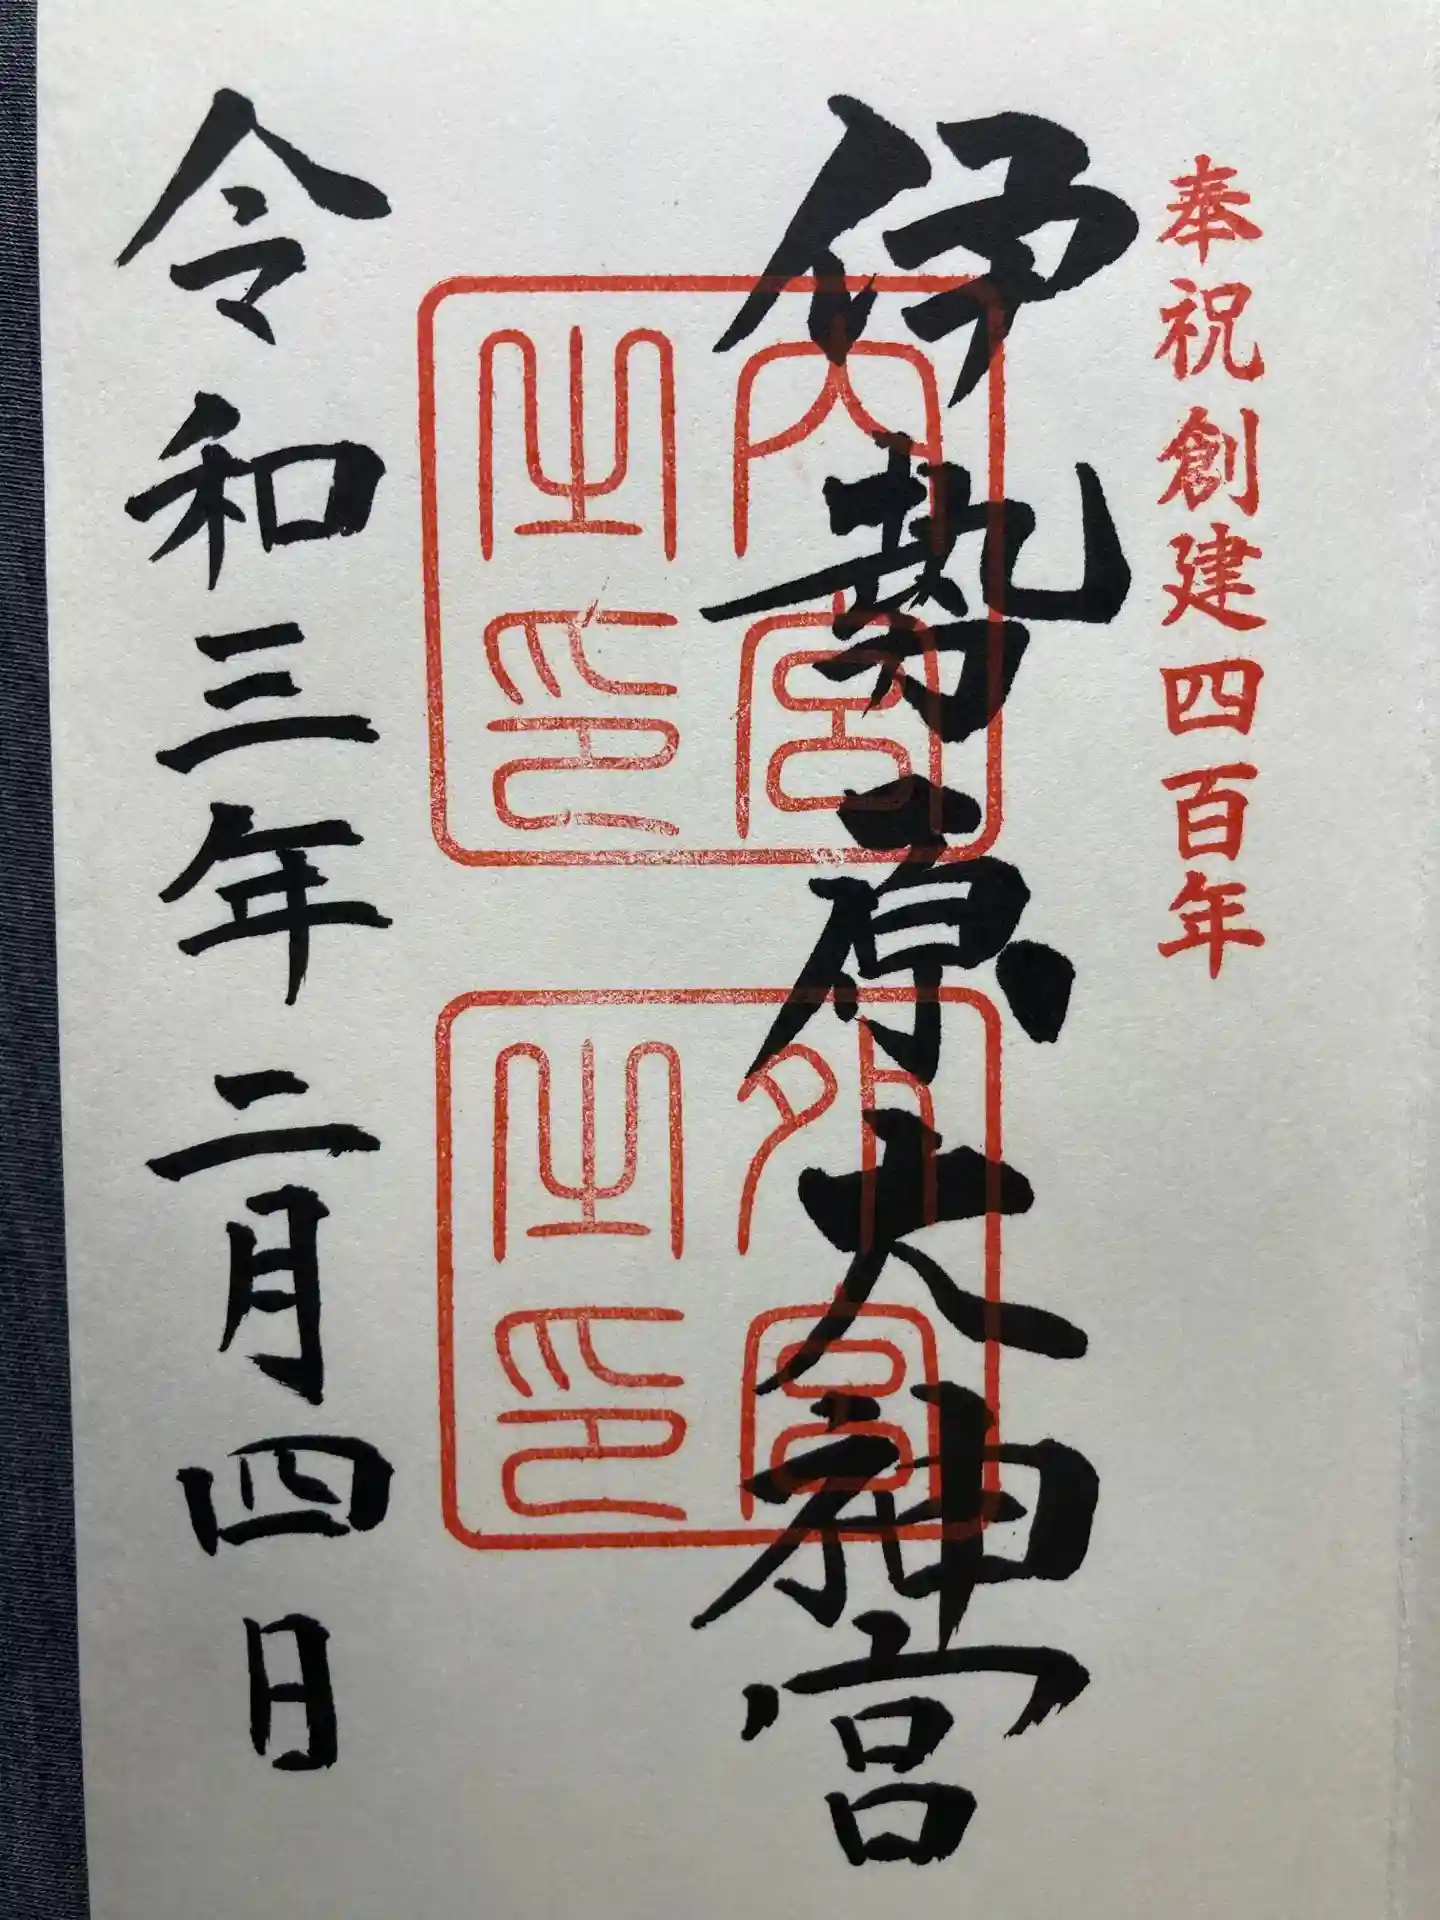 奉祝創建四百年
伊勢原大神宮
内宮之印
外宮之印
令和三年二月四日